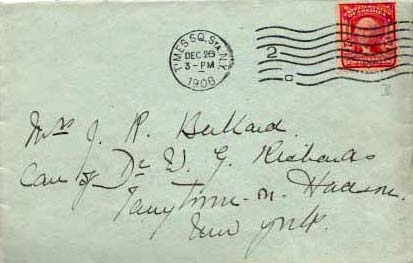 TIMES SQ. STA. N.Y.
DEC 26
3 - PM
1908
2
C
Mrs J. R. Bullard.
Care of Dr W. G. Richards
Tarrytown-on-Hudson.
New York.